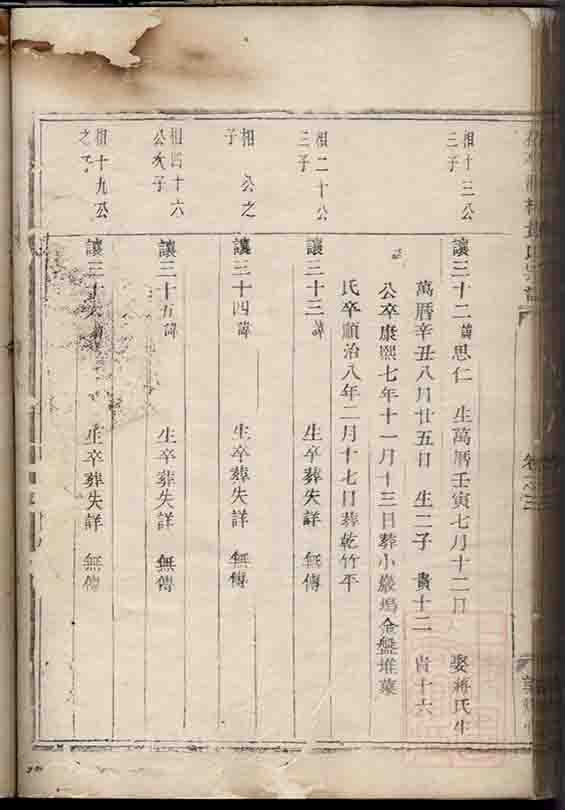 相十三公
三子
讓三十二諱思仁 生萬曆壬寅七月十二日 娶蔣氏生
萬曆辛丑八月廿五日 生二子 貴十二 貴十六
公卒康熙七年十一月十三日葬小巖塢金盤堆菓
氏卒順治八年二月十七日葬乾竹平
相二十公
三子
讓三十三諱 生卒葬失詳 無傳
相 公之
子
讓三十四諱 生卒葬失詳 無傳
相四十六
公次子
讓三十五諱 生卒葬失詳 無傳
相十九公
之子
讓三十六諱 生卒葬失詳 無傳